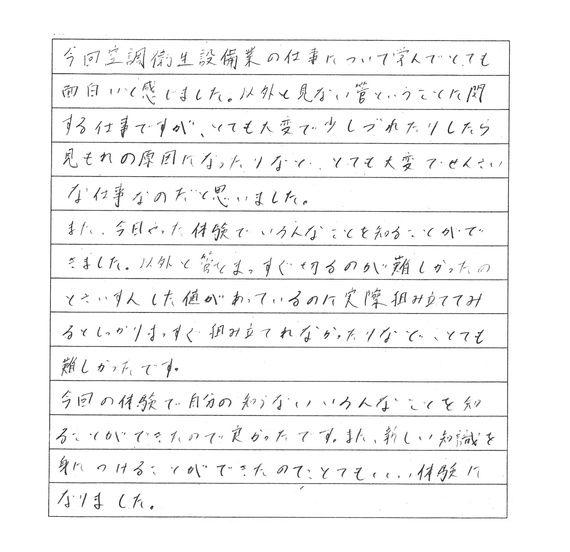 今回空調衛生設備業の仕事について学んでとても
面白いと感じました。以外と見ない管ということに関
する仕事ですが、とても大変で少しづれたりしたら
見もれの原因になったりなど、とても大変でせんさい
な仕事なのだと思いました。
また、今日やった体験でいろんなことを知ることがで
きました。以外と管をまっすぐ切るのが難しかったの
とさいすんした値があっているのに実際組み立ててみ
るとしっかりまっすぐ組み立てれなかったりなど、とても
難しかったです。
今回の体験で自分の知らないいろんなことを知
ることができたので良かったです。また、新しい知識を
身につけることができたのでとてもいい体験に
なりました。